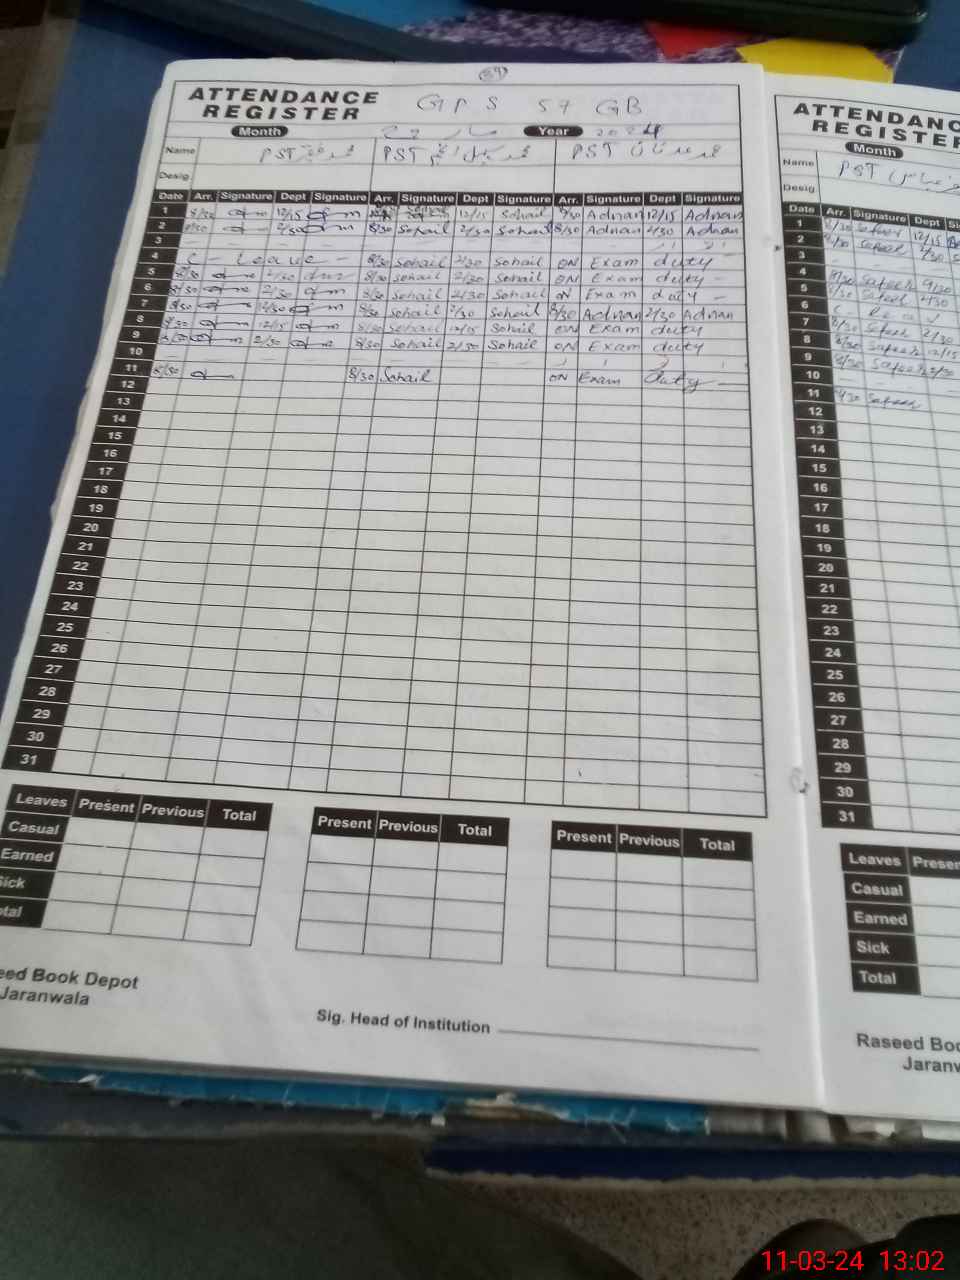 59
ATTENDANCE REGISTER GPS 57 GB
Month مارچ Year 2024
Name PST PST محمد عدنان PST
Desig.
Date Arr. Signature Dept Signature Arr. Signature Dept Signature Arr. Signature Dept Signature
1 8/30 12/15 12/15 Sohail 8/30 Adnan 12/15 Adnan
2 8/30 2/30 8/30 Sohail 2/30 Sohail 8/30 Adnan 2/30 Adnan
3
4 C - Leave - 8/30 Sohail 2/30 Sohail ON Exam duty
5 8/30 2/30 8/30 Sohail 2/30 Sohail ON Exam duty -
6 8/30 2/30 8/30 Sohail 2/30 Sohail ON Exam duty -
7 8/30 2/30 8/30 Sohail 2/30 Sohail 8/30 Adnan 2/30 Adnan
8 8/30 12/15 8/30 Sohail 12/15 Sohail ON Exam duty
9 8/30 2/30 8/30 Sohail 2/30 Sohail ON Exam duty
10
11 8/30 8/30 Sohail ON Exam Duty -
12
13
14
15
16
17
18
19
20
21
22
23
24
25
26
27
28
29
30
31
Leaves Present Previous Total Present Previous Total Present Previous Total
Casual
Earned
Sick
otal
eed Book Depot
Jaranwala
Sig. Head of Institution
ATTENDANCE
REGISTER
Month
Name PST
Desig
Date Arr. Signature Dept
1 8/30 Safeer 12/15
2 8/30 Safeer 2/30
3
4 8/30 Safeer 2/30
5 8/30 Safeer 2/30
6
7 8/30 Safeer 2/30
8 8/30 Safeer 12/15
9 8/30 Safeer 2/30
10
11 8/30 Safeer
12
13
14
15
16
17
18
19
20
21
22
23
24
25
26
27
28
29
30
31
Leaves Presen
Casual
Earned
Sick
Total
Raseed Boo
Jaranw
11-03-24 13:02